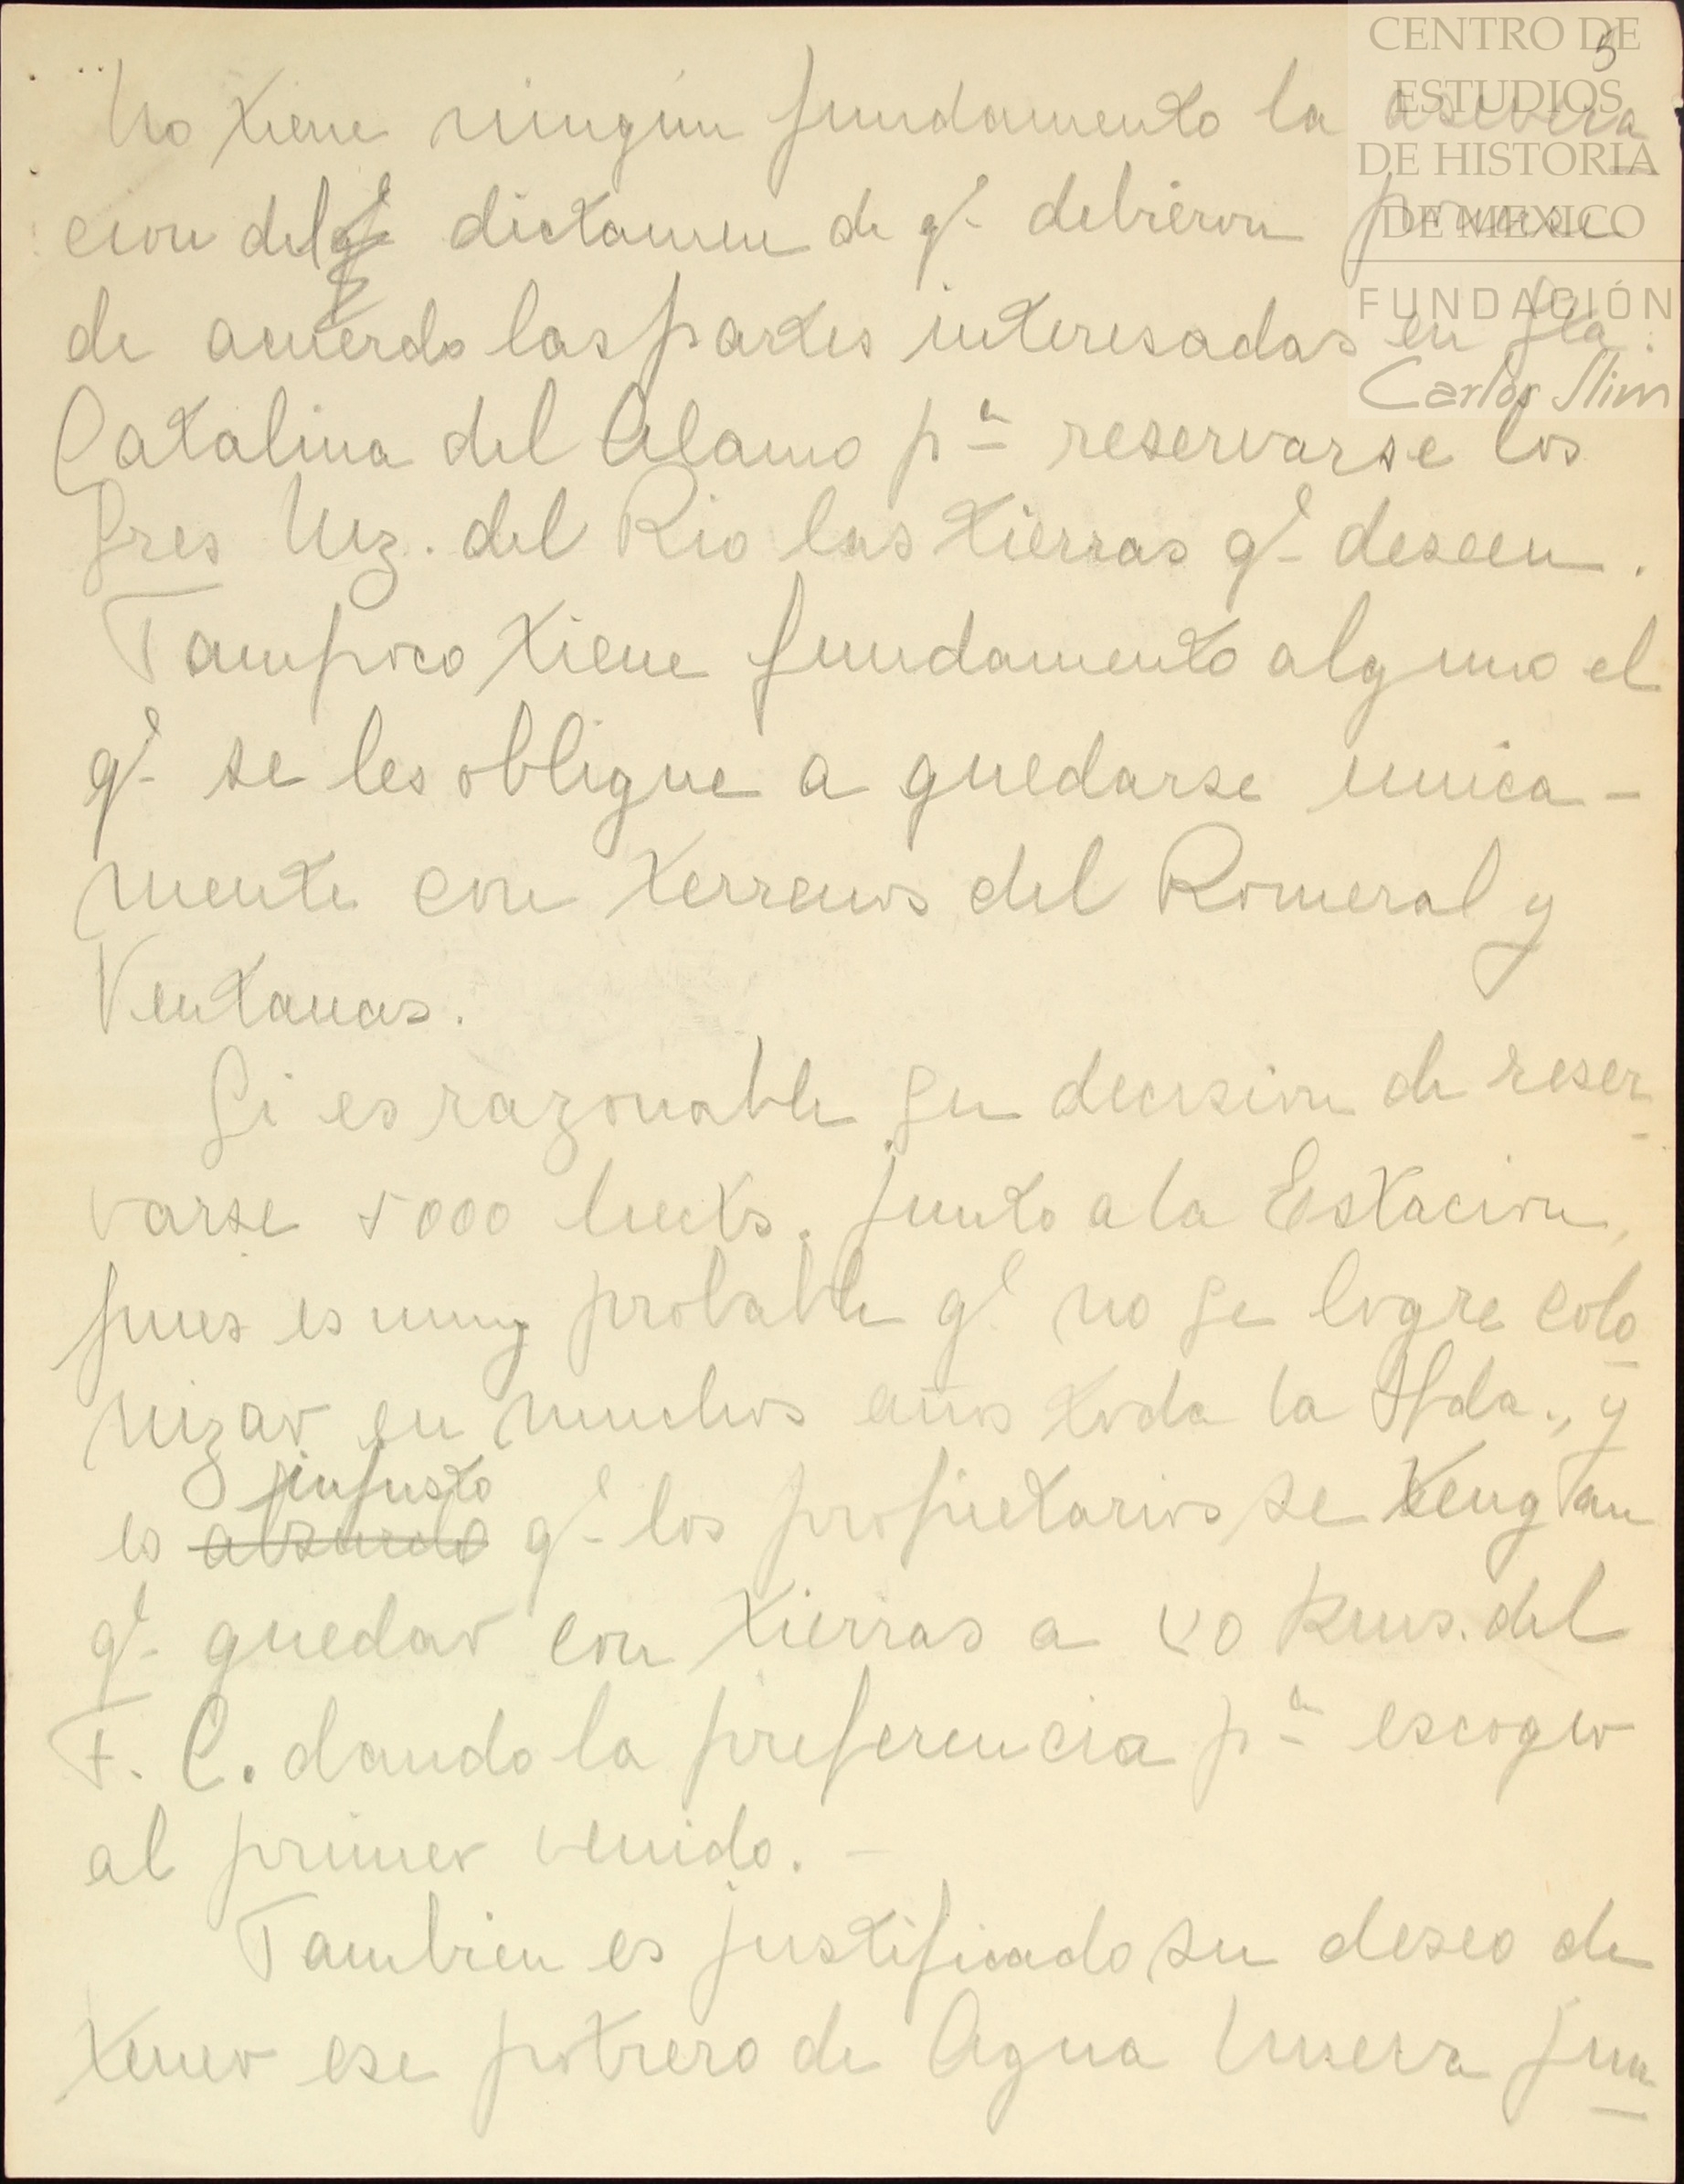 5
No tiene ningún fundamento la asevera
cion del dictamen de qe debieron ponerse
de acuerdo las partes interesadas en Sta.
Catalina del Alamo pa reservarse los
Sres Mz. del Rio las tierras qe deseen.
Tampoco tiene fundamento alguno el
qe se les obligue a quedarse unica-
mente con terrenos del Romeral y
Ventanas.
Si es razonable su decision de reser-
varse 5000 hects. junto a la Estacion,
pues es muy probable qe no se logre colo
nizar en muchos años toda la Hda., y
injusto
es absurdo qe los propietarios se tengan
qe quedar con tierras a 50 kms. del
F. C. dando la preferencia pa escoger
al primer venido.-
Tambien es justificado su deseo de
tener ese potrero de Agua Nueva jun
CENTRO DE
ESTUDIOS
DE HISTORIA
DE MEXICO
FUNDACIÓN
Carlos Slim